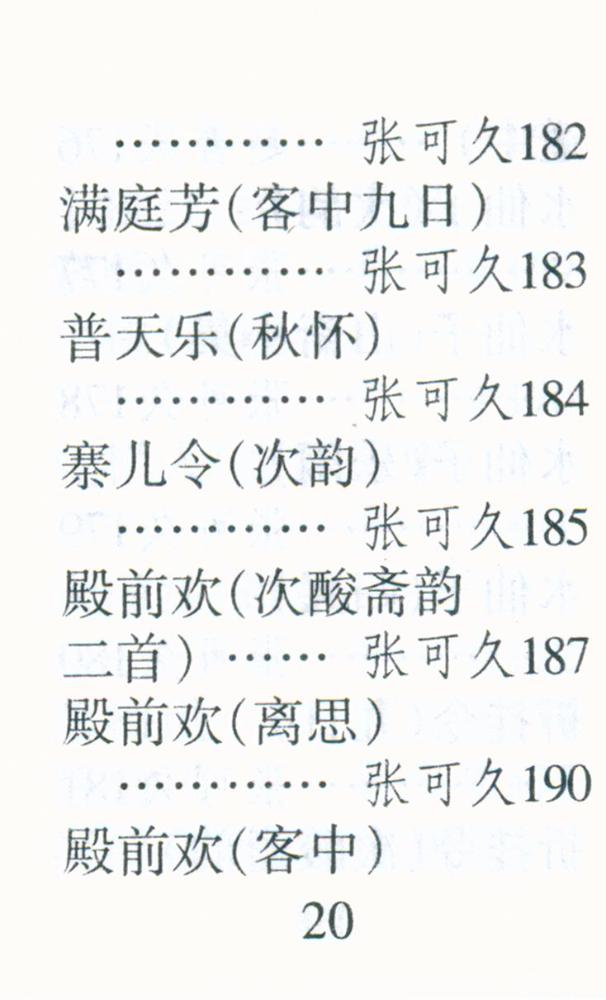 ………… 张可久182
满庭芳(客中九日)
………… 张可久183
普天乐(秋怀)
………… 张可久184
寨儿令(次韵)
………… 张可久185
殿前欢(次酸斋韵
二首)…… 张可久187
殿前欢(离思)
………… 张可久190
殿前欢(客中)
20